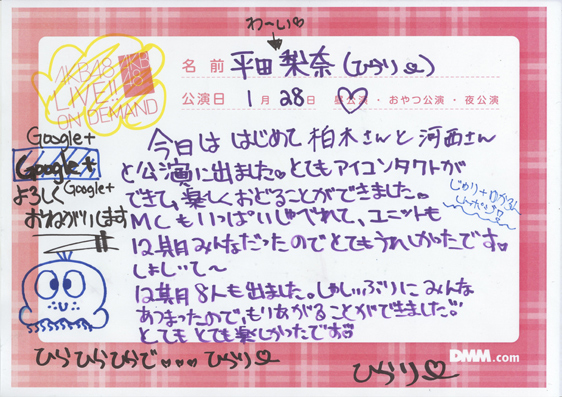 わ〜い♡
AKB48
LIVE!!
ON DEMAND
AKB
48
名前 平田梨奈(ひらり♡)
公演日 1月28日 昼公演・おやつ公演・夜公演
今日ははじめて柏木さんと河西さん
と公演に出ました♡とてもアイコンタクトが
できて、楽しくおどることができました。
MCもいっぱいしゃべれて、ユニットも
12期みんなだったのでとてもうれしかったです♡
そして〜
12期8人も出ました。ひさしぶりにみんな
あつまったので、もりあがることができました!!
とてもとても楽しかったです♡
Google+
Google+
よろしく Google+
おねがいします
ひらひらひらで♥♥♥ ひらり♡
ひらり♡
DMM.com